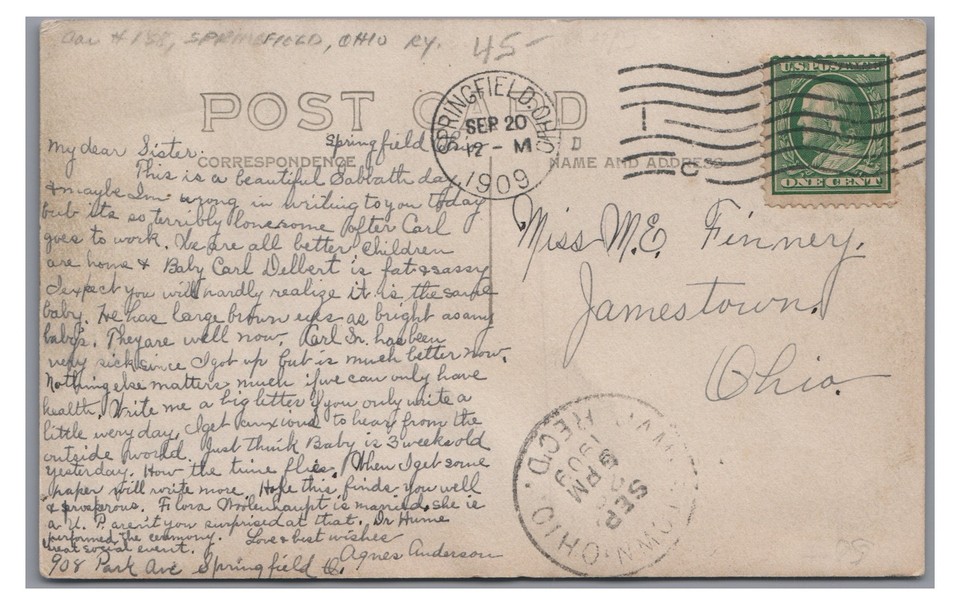 Car #158, SPRINGFIELD, OHIO RY.
45-
POST CARD
SPRINGFIELD, OHIO
SEP 20
12 - M
1909
U.S. POSTAGE
ONE CENT
CORRESPONDENCE
NAME AND ADDRESS
Springfield O.
My dear Sister:
This is a beautiful Sabbath day
& maybe I'm wrong in writing to you today
but its so terribly lonesome after Carl
goes to work. We are all better. Children
are home & Baby Carl Delbert is fat & sassy
I expect you will hardly realize it is the same
baby. He has large brown eyes as bright as any
baby's. They are well now. Carl Sr. has been
very sick since I got up but is much better now.
Nothing else matters much if we can only have
health. Write me a big letter if you only write a
little every day. I get anxious to hear from the
outside world. Just think Baby is 3 weeks old
yesterday. How the time flies. When I get some
paper will write more. Hope this finds you well
& prosperous. Flora Wolenhaupt is married, she is
a U. P. aren't you surprised at that. Dr Hume
performed the ceremony.
Great social event.
Love & best wishes
Agnes Anderson
908 Park Ave Springfield O.
Miss M.E. Finney.
Jamestown.
Ohio.
JAMESTOWN, OHIO.
REC'D.
SEP
PM
1909